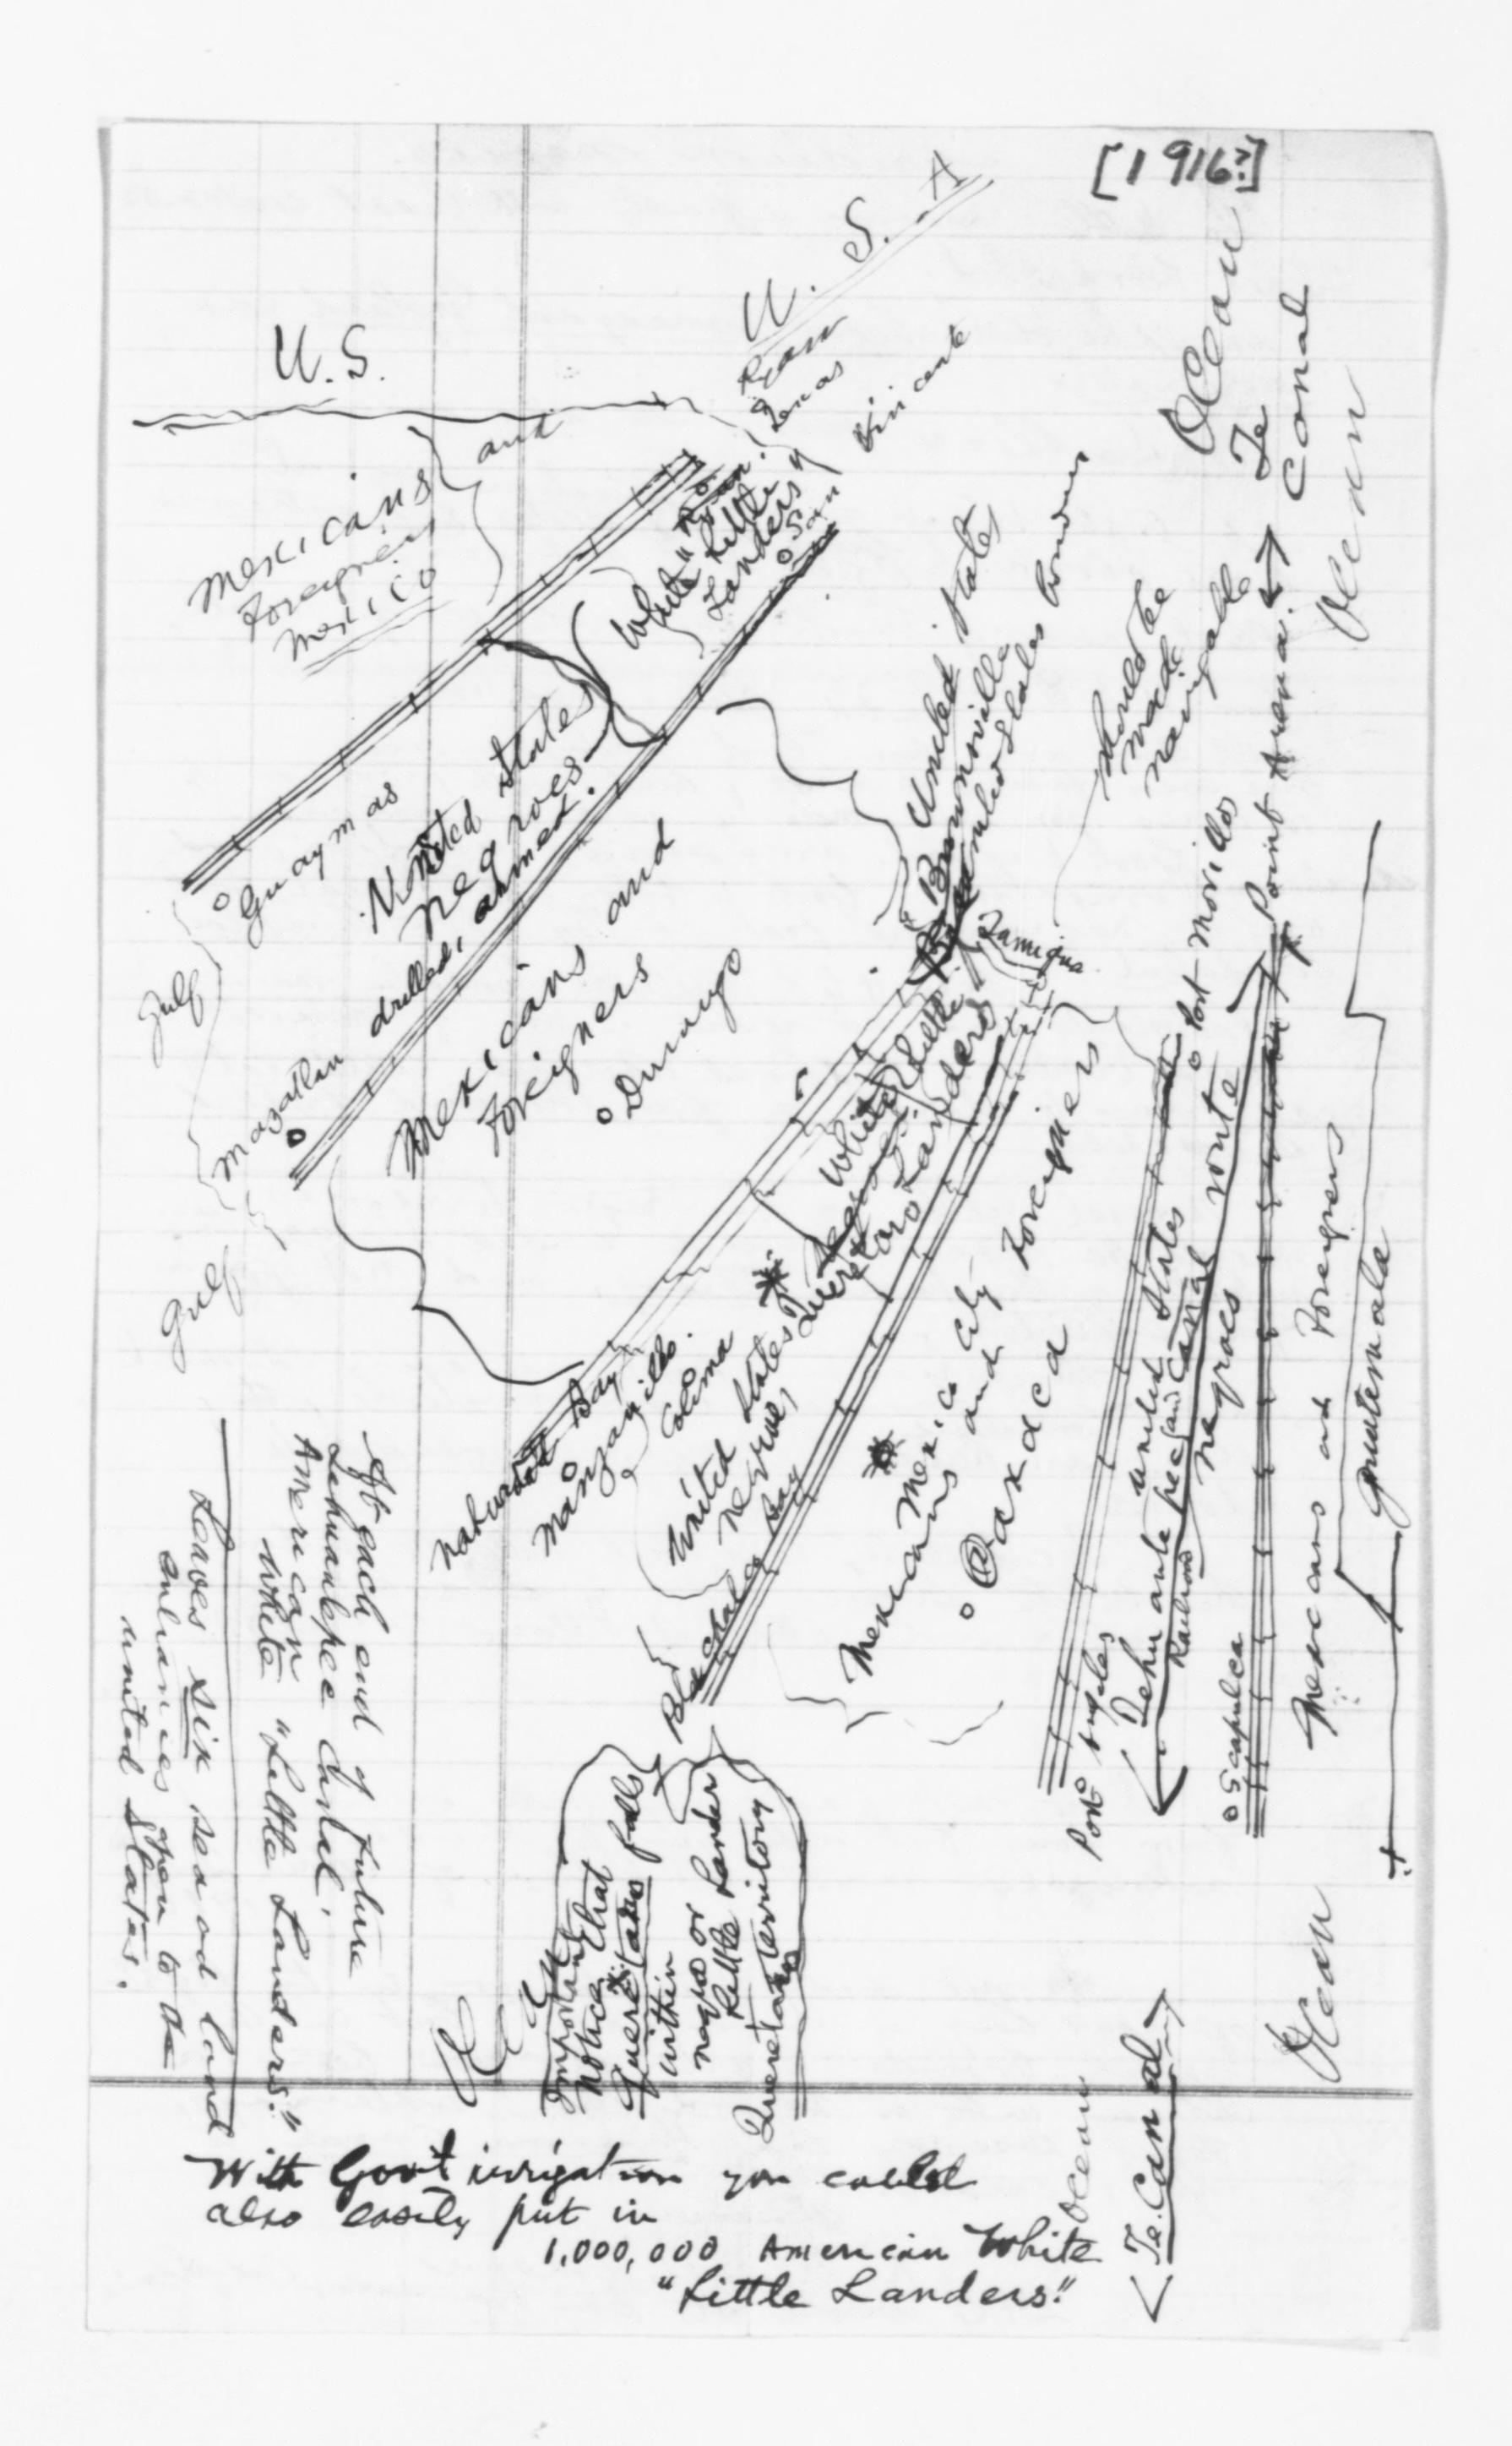 [1916?]
U. S. A
U.S.
Texas
Mexicans
and
Foreigners
Mexico
White
Little
Landers"
San
Vincente
Guaymas
United States
negroes
drilled, armed.
Gulf
Mazatlan
Gulf
Mexicans and
Foreigners
Durango
United States
Brownsville
United States border
Tamiqua
should be
made
navigable
Ocean
Te
Canal
Ocean
White Little
Landers
Queretaro
Bay
Manzanillo.
Colima
United States
negroes
Bay
Mexico City
Mexicans and Foreigners
Oaxaca
Port Angeles
Port Morillos
Point Arena.
United States
Tehuantepec Canal route
Railroad
negroes
Mexicans and Foreigners
Guatemala
Ocean
At each end of future
Tehuantepec Canal,
American
White "Little Landers."
Leaves six sea and land
entrances open to the
United States.
Ocean
Important
Notice that
Queretaro falls
within
negro or
Little Lander
Queretaro territory
Ocean
Te. Canal
With Govt irrigation you could
also easily put in
1,000,000 American White
"Little Landers."